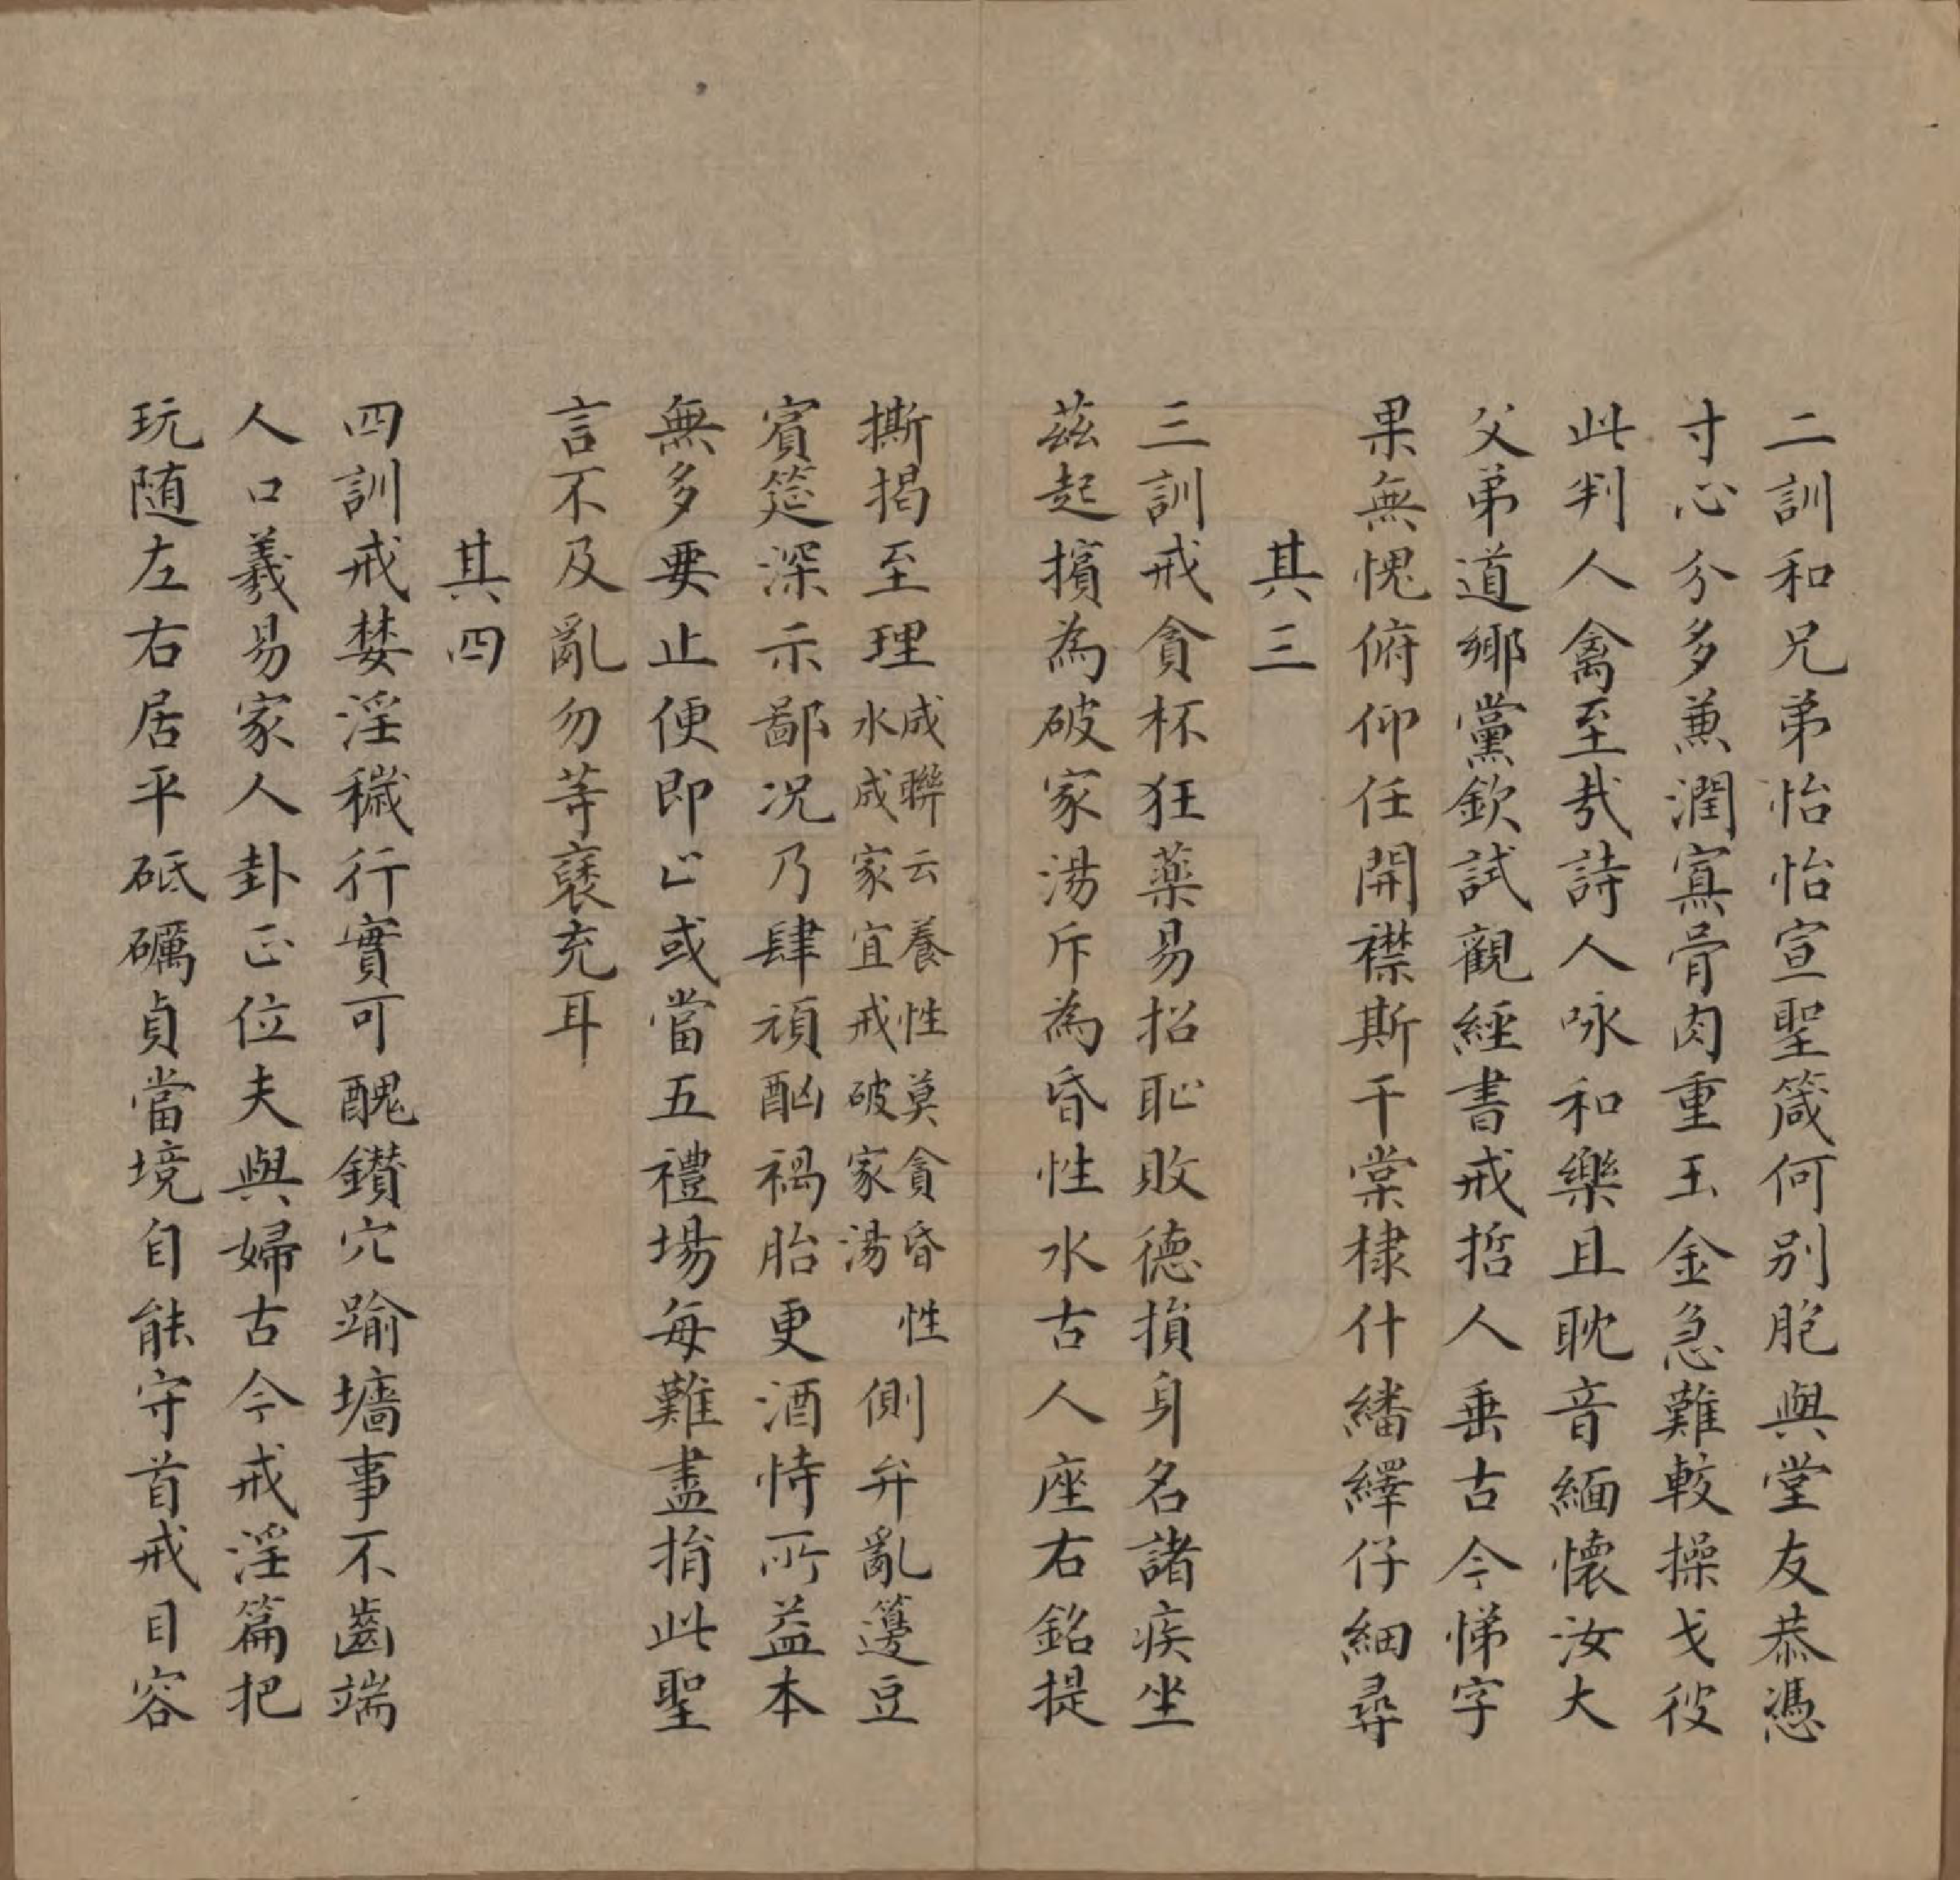 二訓和兄弟怡怡宣聖箴何別胞與堂友恭憑
寸心分多兼潤寡骨肉重玉金急難較操戈彼
此判人禽至哉詩人咏和樂且耽音緬懷汝大
父弟道鄉黨欽試觀經書戒哲人垂古今悌字
果無愧俯仰任開襟斯干棠棣什繙繹仔細尋
其三
三訓戒貪杯狂藥易招恥敗德損身名諸疾坐
茲起擯為破家湯斥為昏性水古人座右銘提
撕揭至理成聯云養性莫貪昏性水成家宜戒破家湯側弁亂籩豆
賓筵深示鄙况乃肆頑酗禍胎更酒恃所益本
無多要止便即止或當五禮場每難盡捐此聖
言不及亂勿等褎充耳
其四
四訓戒婪淫穢行實可醜鑽穴踰墻事不齒端
人口羲易家人卦正位夫與婦古今戒淫篇把
玩随左右居平砥礪貞當境自能守首戒目容